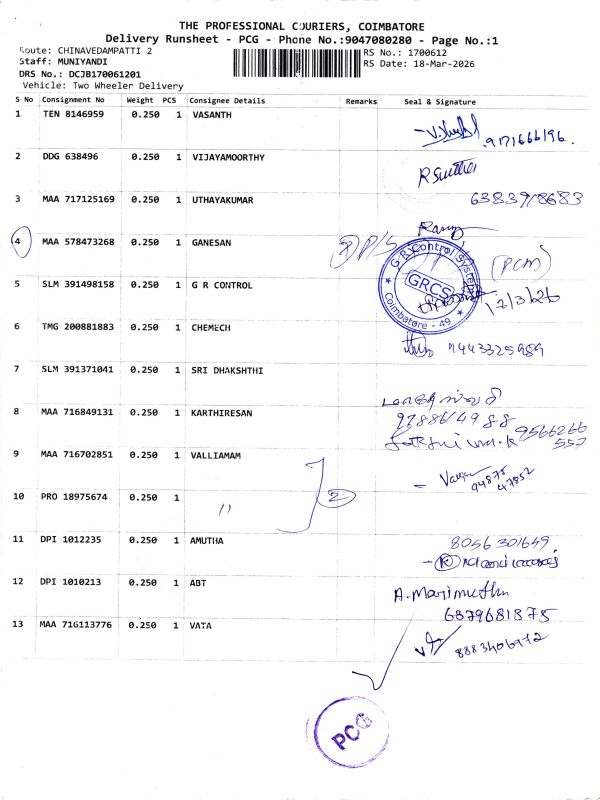 THE PROFESSIONAL COURIERS, COIMBATORE
Delivery Runsheet - PCG - Phone No.:9047080280 - Page No.:1
Route: CHINAVEDAMPATTI 2
RS No.: 1700612
Staff: MUNIYANDI
RS Date: 18-Mar-2026
DRS No.: DCJB170061201
Vehicle: Two Wheeler Delivery
S No Consignment No Weight PCS Consignee Details Remarks Seal & Signature
1 TEN 8146959 0.250 1 VASANTH
9171666196.
2 DDG 638496 0.250 1 VIJAYAMOORTHY
3 MAA 717125169 0.250 1 UTHAYAKUMAR
4 MAA 578473268 0.250 1 GANESAN
G R Control System
GRCS
Coimbatore - 49
5 SLM 391498158 0.250 1 G R CONTROL
6 TMG 200881883 0.250 1 CHEMECH
9443325989
7 SLM 391371041 0.250 1 SRI DHAKSHTHI
8 MAA 716849131 0.250 1 KARTHIRESAN
9788614988
9566266
557
9 MAA 716702851 0.250 1 VALLIAMAM
94875
47852
10 PRO 18975674 0.250 1 "
2
11 DPI 1012235 0.250 1 AMUTHA
8056301649
12 DPI 1010213 0.250 1 ABT
A. Marimuthu
6379681875
13 MAA 716113776 0.250 1 VATA
8883406972
PCG